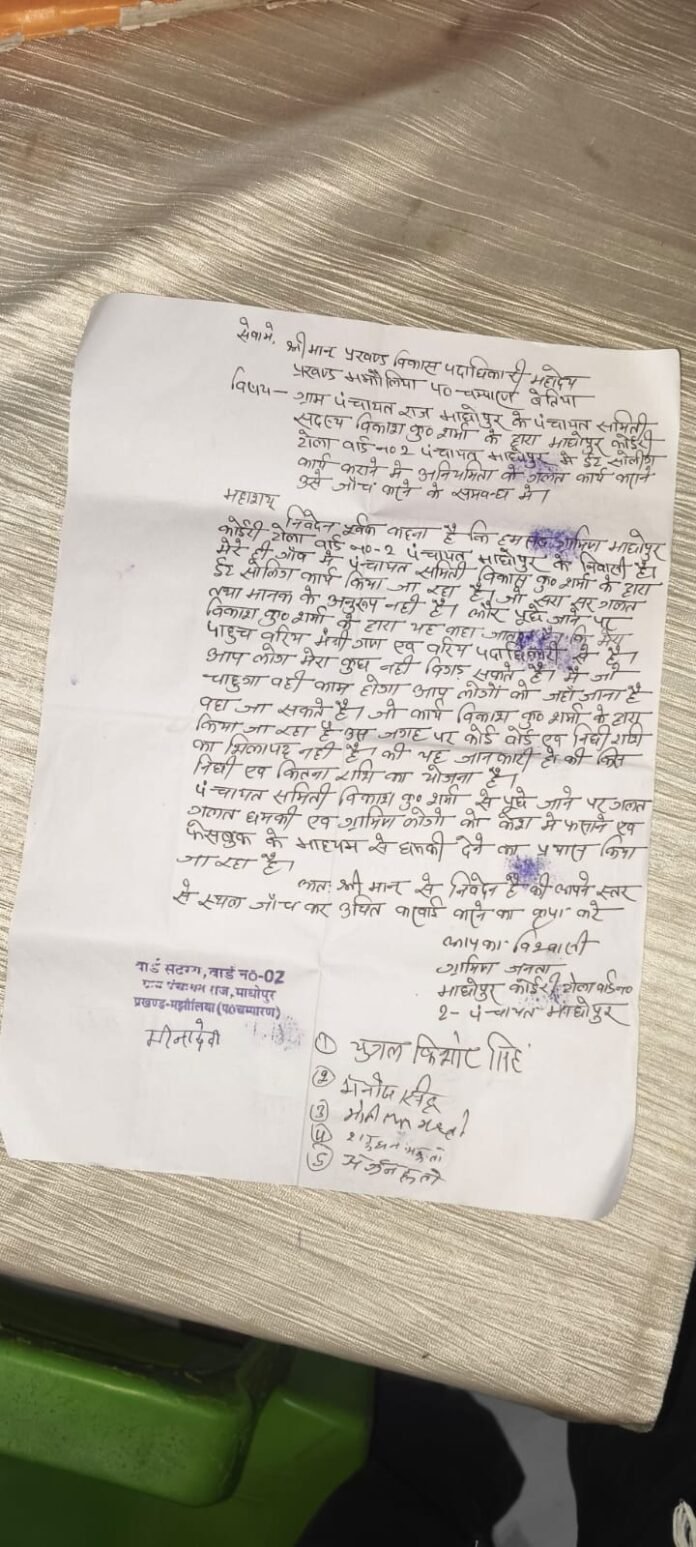 सेवामे, श्रीमान प्रखण्ड विकास पदाधिकारी महोदय
प्रखण्ड मझौलिया प० चम्पारण बेतिया
विषय- ग्राम पंचायत राज माधोपुर के पंचायत समिति
सदस्य विकाश कु० शर्मा के द्वारा माधोपुर कोईरी
टोला वार्ड न० 2 पंचायत माधोपुर मे ईट सोलींग
कार्य कराने मे अनियमिता के गलत कार्य कराने
उसे जाँच करने के सम्बन्ध मे।
महाशय
निवेदन पूर्वक कहना है कि हम ग्रामिण माधोपुर
कोईरी टोला वार्ड न०-2 पंचायत माधोपुर के निवासी है।
मेरे ही गाँव मे पंचायत समिति विकाश कु० शर्मा के द्वारा
ईट सोलिंग कार्य किया जा रहा है। जो सरा सर गलत
तथा मानक के अनुरूप नही है। और पूछे जाने पर
विकाश कु० शर्मा के द्वारा यह कहा जाता है कि मेरा
पाहुच वरिय मंत्री गण एव वरिय पदाधिकारी से है।
आप लोग मेरा कुछ नही विगाड़ सकते है। मै जो
चाहुगा वही काम होगा आप लोगो को जहाँ जाना है
वहा जा सकते है। जो कार्य विकाश कु० शर्मा के द्वारा
किया जा रहा है उस जगह पर कोई वोर्ड एव निधी राशी
का शिलापट नही है। की यह जानकारी हो की किस
निधी एव कितना राशि का योजना है।
पंचायत समिती विकाश कु० शर्मा से पूछे जाने पर गलत
गलत धमकी एव ग्रामिण लोगो को केश मे फसाने एव
फेसबुक के माध्यम से धमकी देने का प्रयास किया
जा रहा है।
अतः श्री मान से निवेदन है की आपने स्तर
से स्थल जाँच कर उचित कार्वाई करने का कृपा करे
आपका विश्वासी
ग्रामिण जनता
माधोपुर कोईरी टोला वार्ड न०
2- पंचायत माधोपुर
वार्ड सदस्य, वार्ड न०-02
ग्राम पंचायत राज, माधोपुर
प्रखण्ड-मझौलिया (प०चम्पारण)
मीनादेवी
① युगल किशोर सिंह
②
③ मोती
④
⑤